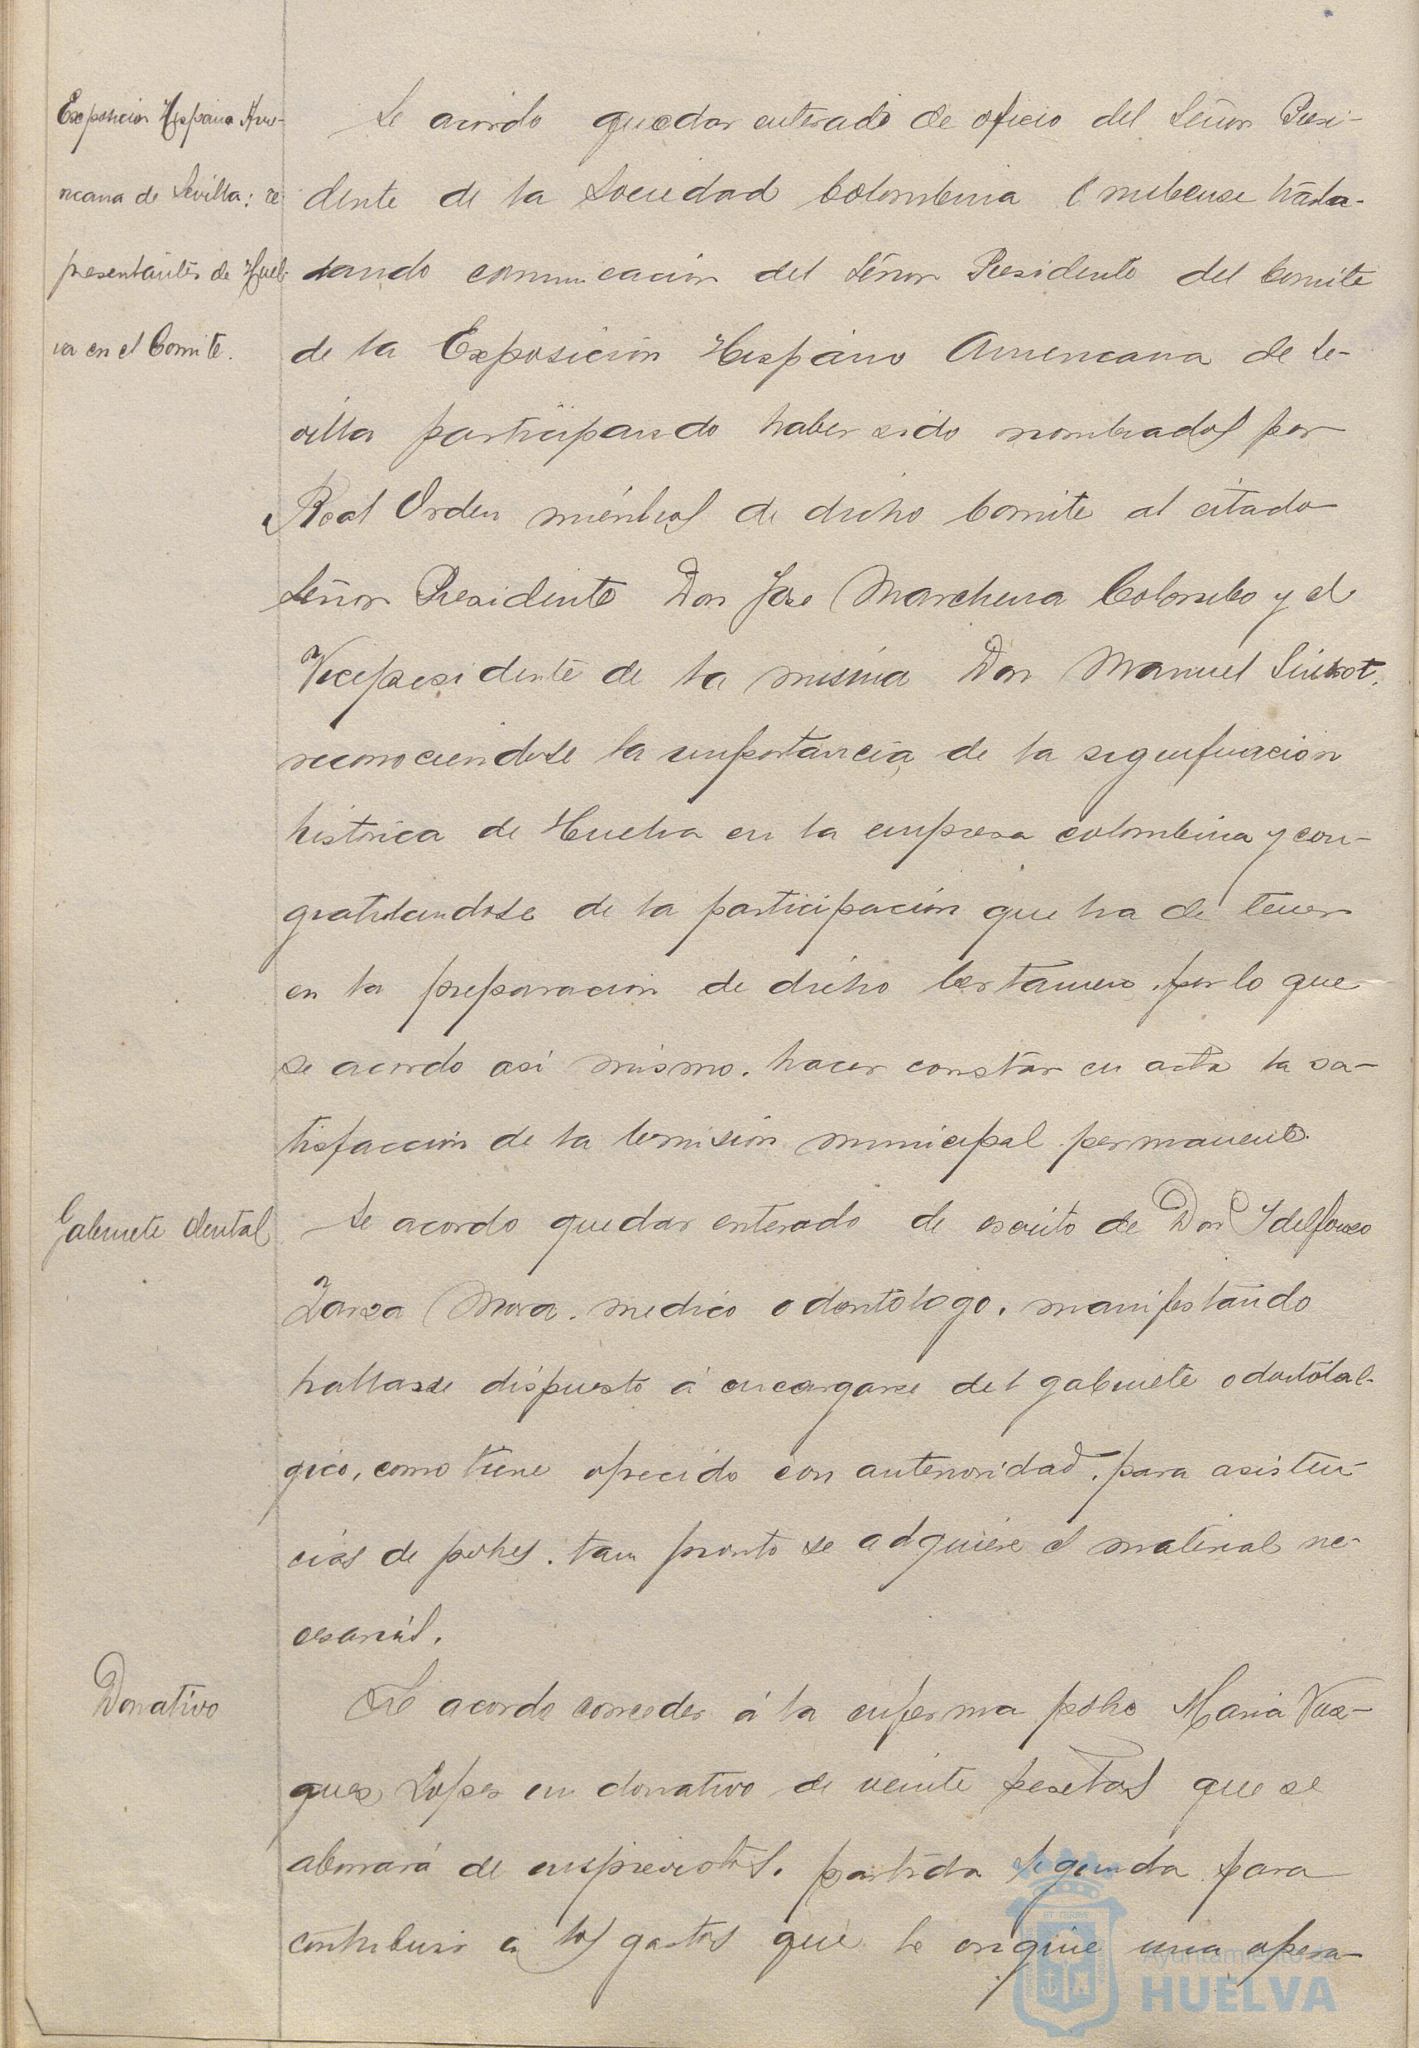 Exposición Hispano Ame-
ricana de Sevilla: re
presentantes de Huel-
va en el Comite.
Se acordo quedar enterado de oficio del Señor Presi-
dente de la Sociedad Colombina Onubense trasla-
dando comunicación del Señor Presidente del Comite
de la Exposición Hispano Americana de Se-
villa participando haber sido nombrados por
Real Orden miembros de dicho Comite al citado
Señor Presidente Don José Marchena Colombo y el
Vicepresidente de la misma Don Manuel Siurot,
reconociendose la importancia de la significación
histórica de Huelva en la empresa colombina y con-
gratulandose de la participación que ha de tener
en la preparación de dicho Certamen, por lo que
se acordo asi mismo, hacer constar en acta la sa-
tisfacción de la Comisión municipal permanente.
Gabinete dental
Se acordo quedar enterado de escrito de Don Ydelfonso
Zarza Mora, medico odontologo, manifestando
hallarse dispuesto á encargarse del gabinete odontolol-
gico, como tiene ofrecido con anterioridad, para asisten-
cias de pobres, tan pronto se adquiere el material ne-
cesario.
Donativo
Se acordo conceder á la enferma pobre Maria Vaz-
quez Lopez un donativo de veinte pesetas que se
abonará de imprevistos, partida segunda para
contribuir a los gastos que le origine una opera-
Ayuntamiento de
HUELVA